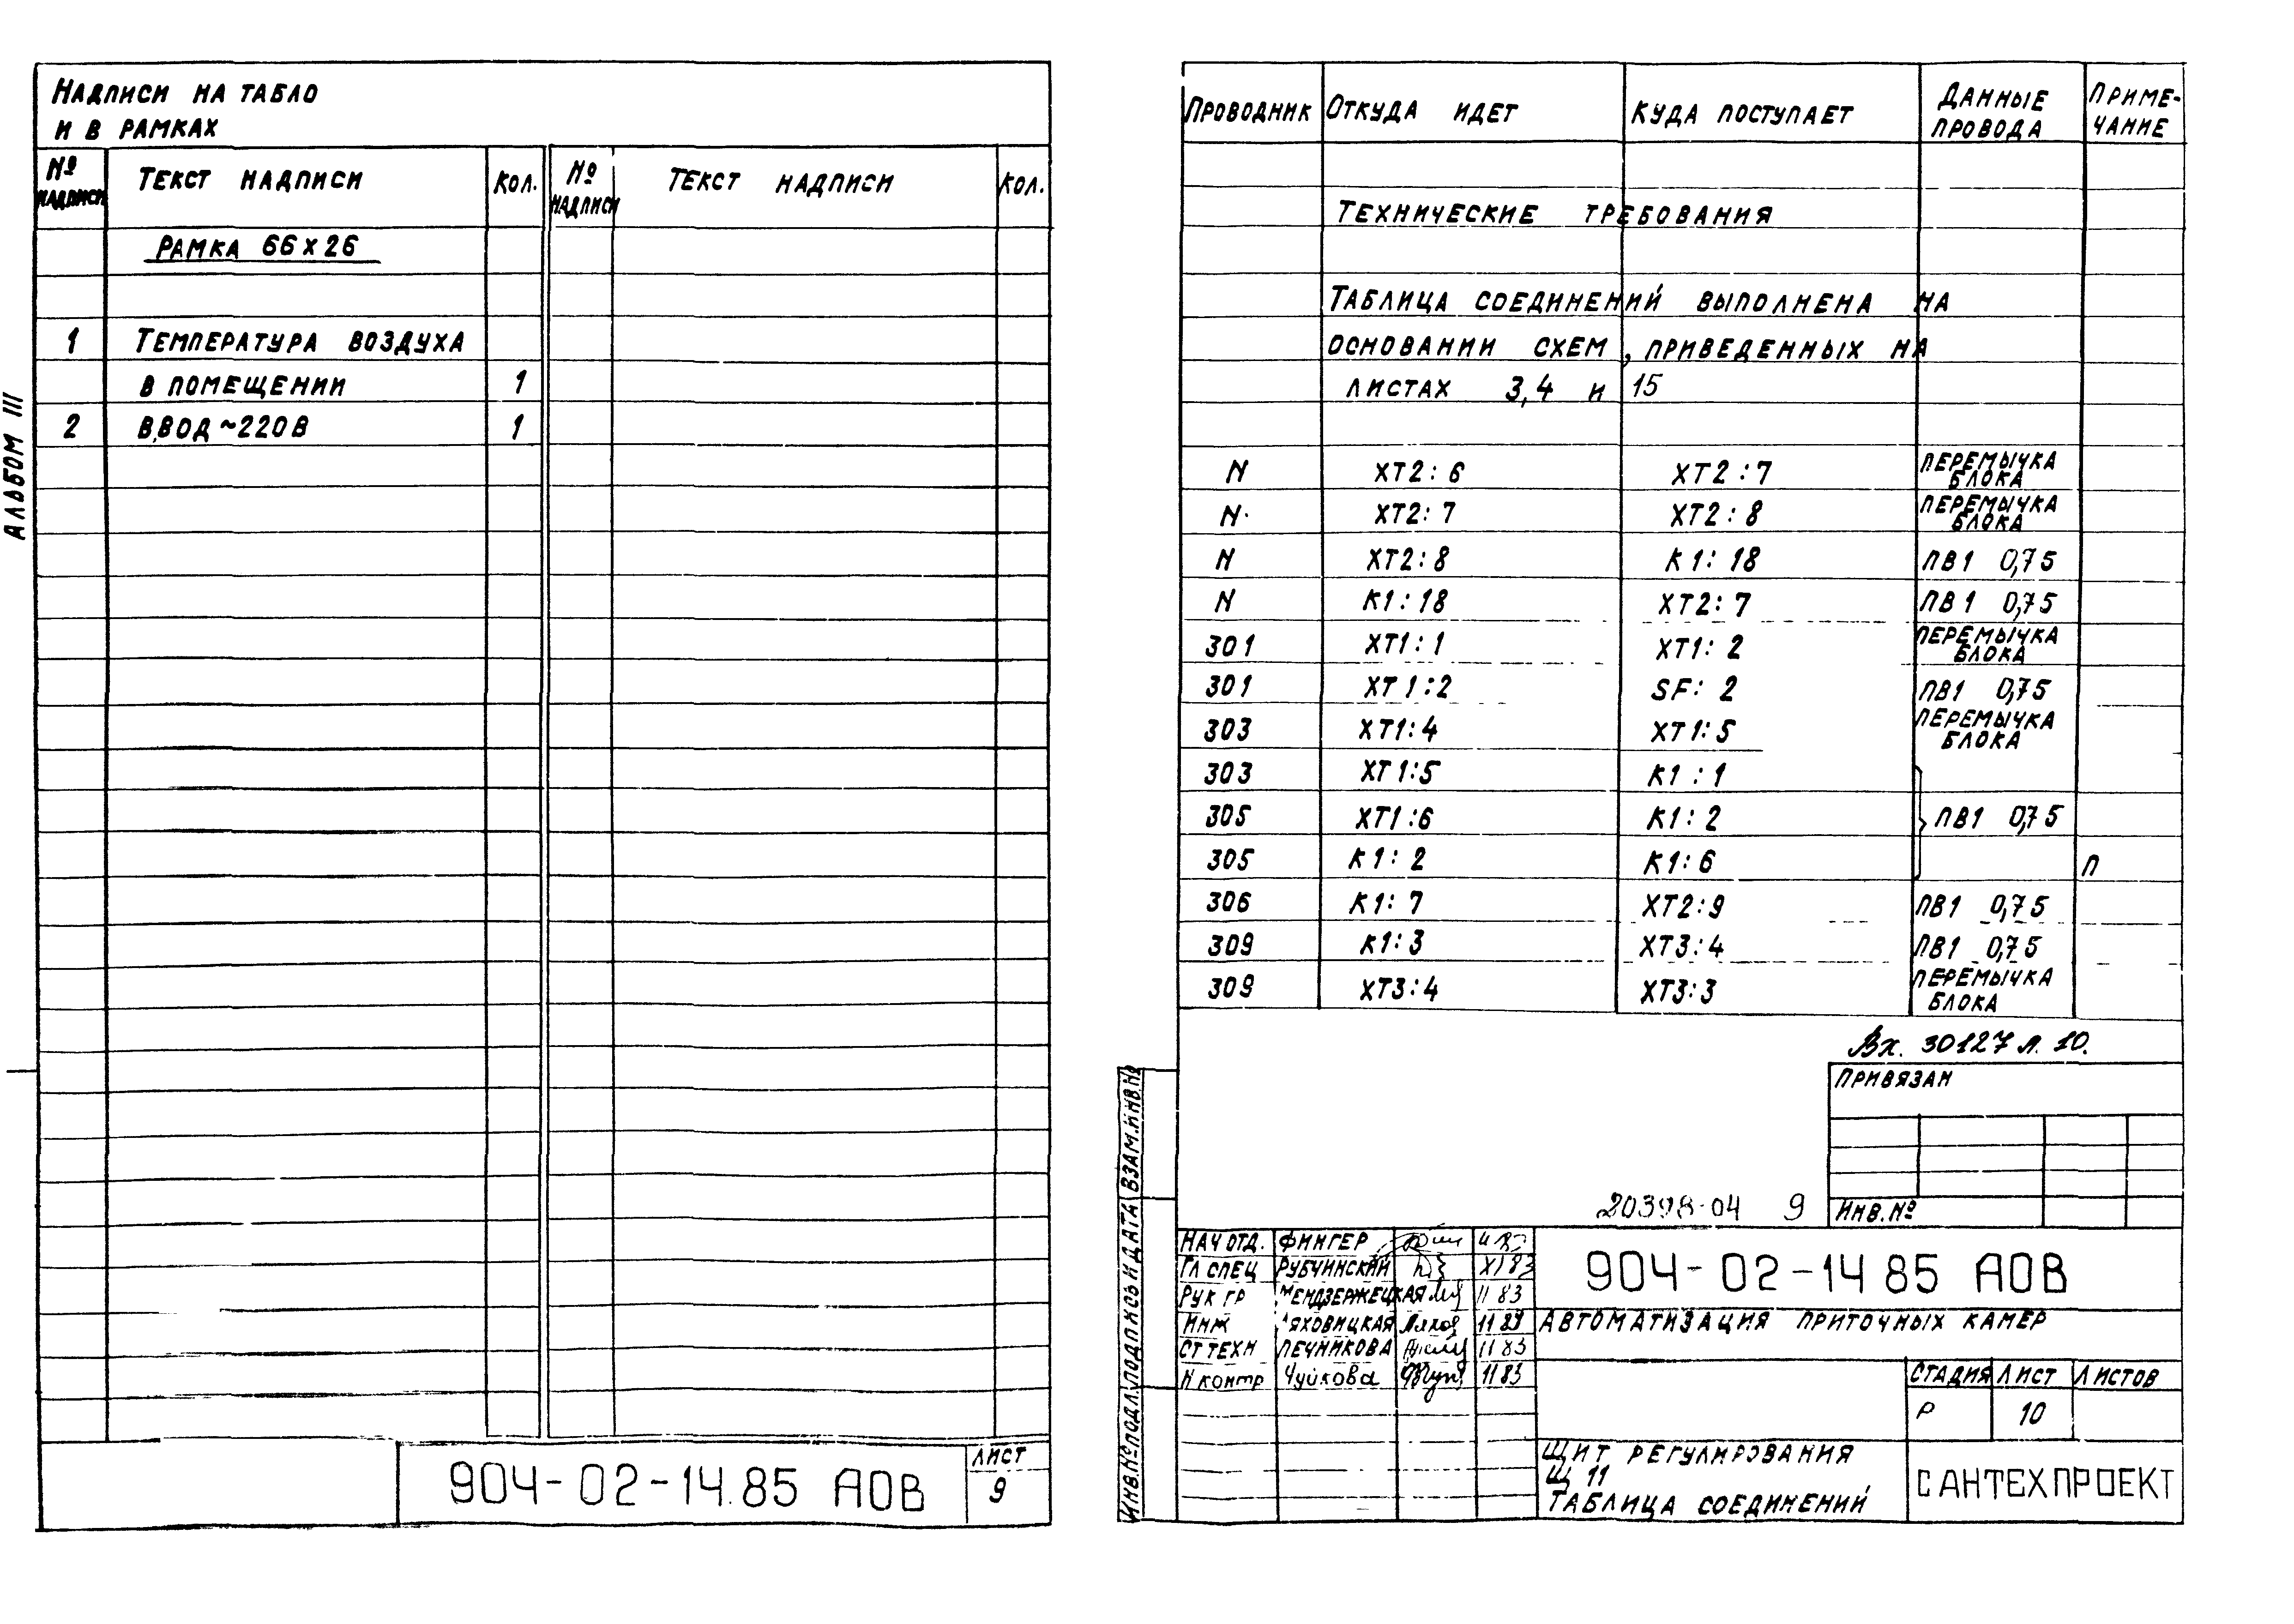 АЛЬБОМ III
НАДПИСИ НА ТАБЛО
И В РАМКАХ
№ НАДПИСИ ТЕКСТ НАДПИСИ КОЛ. № НАДПИСИ ТЕКСТ НАДПИСИ КОЛ.
РАМКА 66X26
1 ТЕМПЕРАТУРА ВОЗДУХА
В ПОМЕЩЕНИИ 1
2 ВВОД ~220В 1
904-02-14.85 АОВ
ЛИСТ
9
ПРОВОДНИК ОТКУДА ИДЕТ КУДА ПОСТУПАЕТ ДАННЫЕ ПРОВОДА ПРИМЕ-ЧАНИЕ
ТЕХНИЧЕСКИЕ ТРЕБОВАНИЯ
ТАБЛИЦА СОЕДИНЕНИЙ ВЫПОЛНЕНА НА
ОСНОВАНИИ СХЕМ, ПРИВЕДЕННЫХ НА
ЛИСТАХ 3,4 и 15
N XT2:6 XT2:7 ПЕРЕМЫЧКА БЛОКА
N XT2:7 XT2:8 ПЕРЕМЫЧКА БЛОКА
N XT2:8 K1:18 ПВ1 0,75
N K1:18 XT2:7 ПВ1 0,75
301 XT1:1 XT1:2 ПЕРЕМЫЧКА БЛОКА
301 XT1:2 SF:2 ПВ1 0,75
303 XT1:4 XT1:5 ПЕРЕМЫЧКА БЛОКА
303 XT1:5 K1:1
305 XT1:6 K1:2 ПВ1 0,75
305 K1:2 K1:6 П
306 K1:7 XT2:9 ПВ1 0,75
309 K1:3 XT3:4 ПВ1 0,75
309 XT3:4 XT3:3 ПЕРЕМЫЧКА БЛОКА
Вх. 30127 л. 10.
ПРИВЯЗАН
ИНВ.№
20398-04 9
ИНВ.№ ПОДЛ. ПОДПИСЬ И ДАТА ВЗАМ.ИНВ.№
НАЧ ОТД. ФИНГЕР
ГЛ СПЕЦ РУБЧИНСКИЙ XI 83
РУК ГР МЕНДЗЕРЖЕЦКАЯ 11 83
ИНЖ ЛЯХОВИЦКАЯ 11 83
СТ ТЕХН ПЕЧНИКОВА 11 83
Н контр Чуйкова 11 83
904-02-14 85 АОВ
АВТОМАТИЗАЦИЯ ПРИТОЧНЫХ КАМЕР
СТАДИЯ ЛИСТ ЛИСТОВ
Р 10
ЩИТ РЕГУЛИРОВАНИЯ
Щ 11
ТАБЛИЦА СОЕДИНЕНИЙ
САНТЕХПРОЕКТ